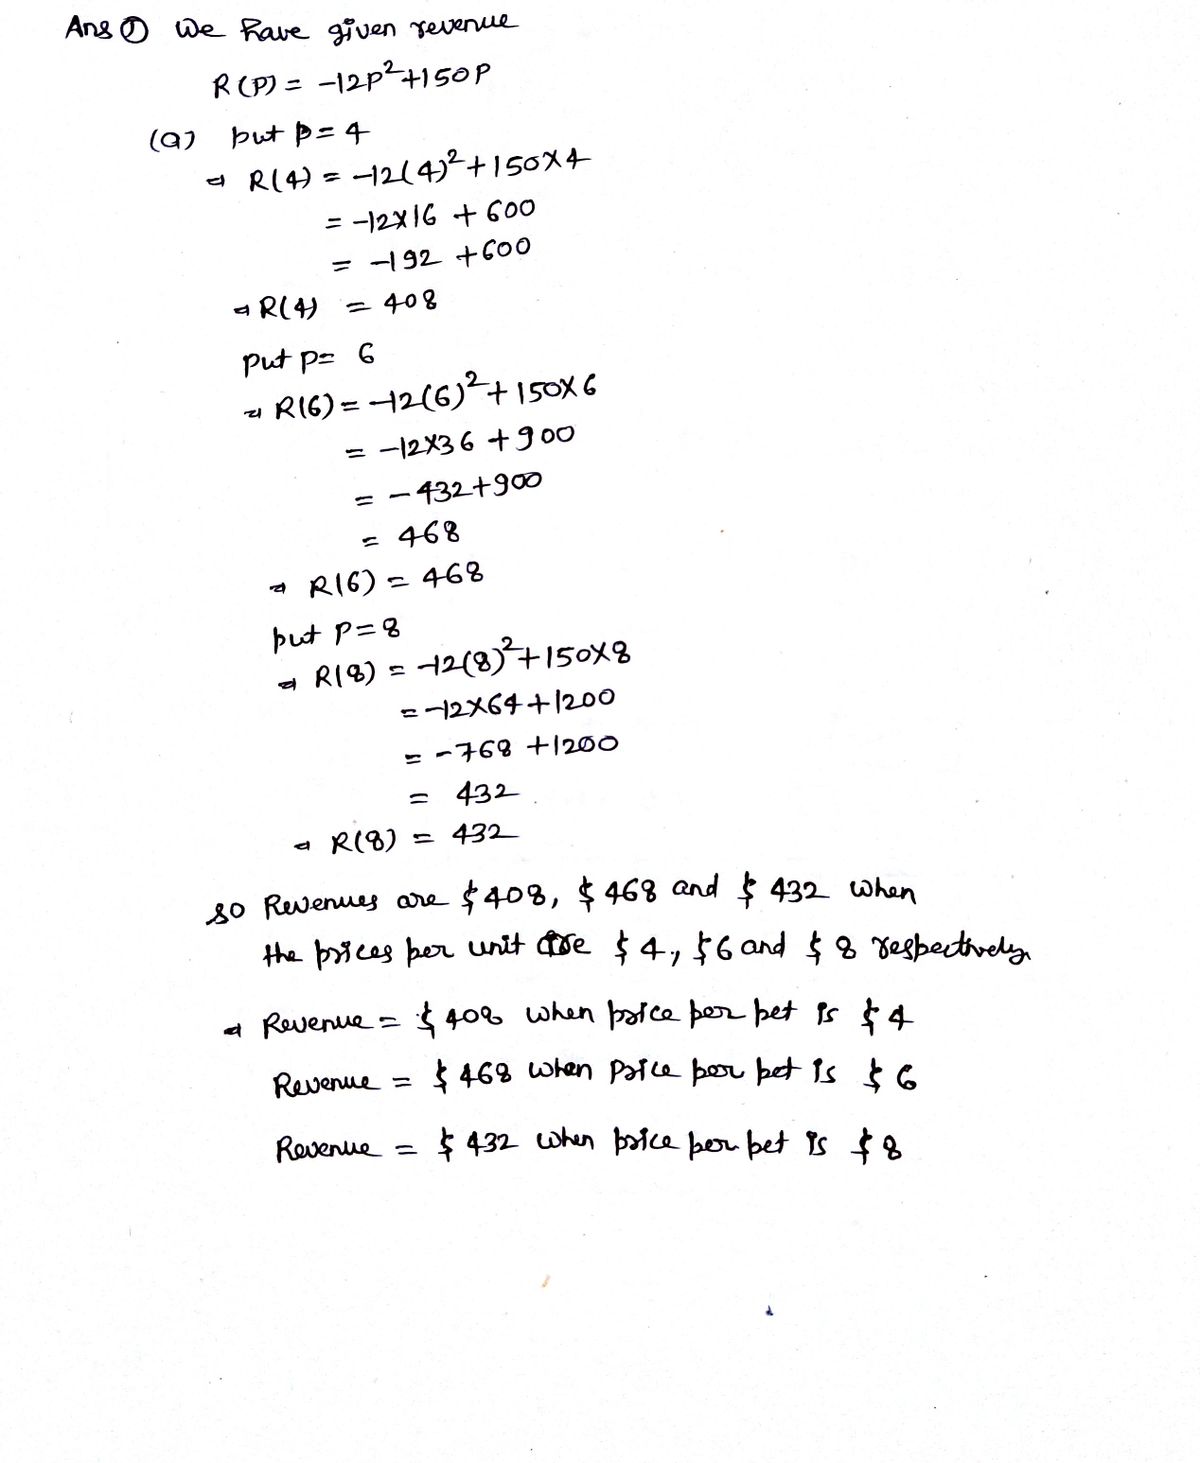 Ans ① We have given revenue
R(P) = -12P²+150P
(a) put p = 4
⇒ R(4) = -12(4)²+150×4
= -12×16 + 600
= -192 +600
⇒ R(4) = 408
put p= 6
⇒ R(6) = -12(6)²+150×6
= -12×36 +900
= -432+900
= 468
⇒ R(6) = 468
put P=8
⇒ R(8) = -12(8)²+150×8
= -12×64+1200
= -768 +1200
= 432
⇒ R(8) = 432
so Revenues are $408, $468 and $432 when
the prices per unit are $4, $6 and $8 respectively
⇒ Revenue = $408 when price per pet is $4
Revenue = $468 when price per pet is $6
Revenue = $432 when price per pet is $8